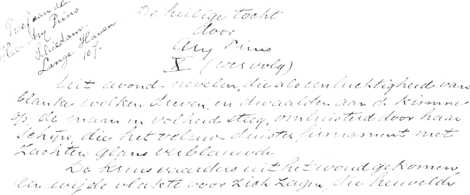 Proef aan den
Heer Ary Prins
Schiedam
Lange Haven
107.
De heilige tocht
door
Ary Prins
X (vervolg)
Uit avond-nevelen, die als een luchtigheid van
blanke wolken dreven, en dwaalden aan de kimme
op, de maan in volheid steeg, omluisterd door haar
schijn, die het veluw duister firmament met
zachten glans verblauwde.
De Kruisvaarders uit het woud gekomen
een wijde vlakte voor zich zagen, die heuvelde